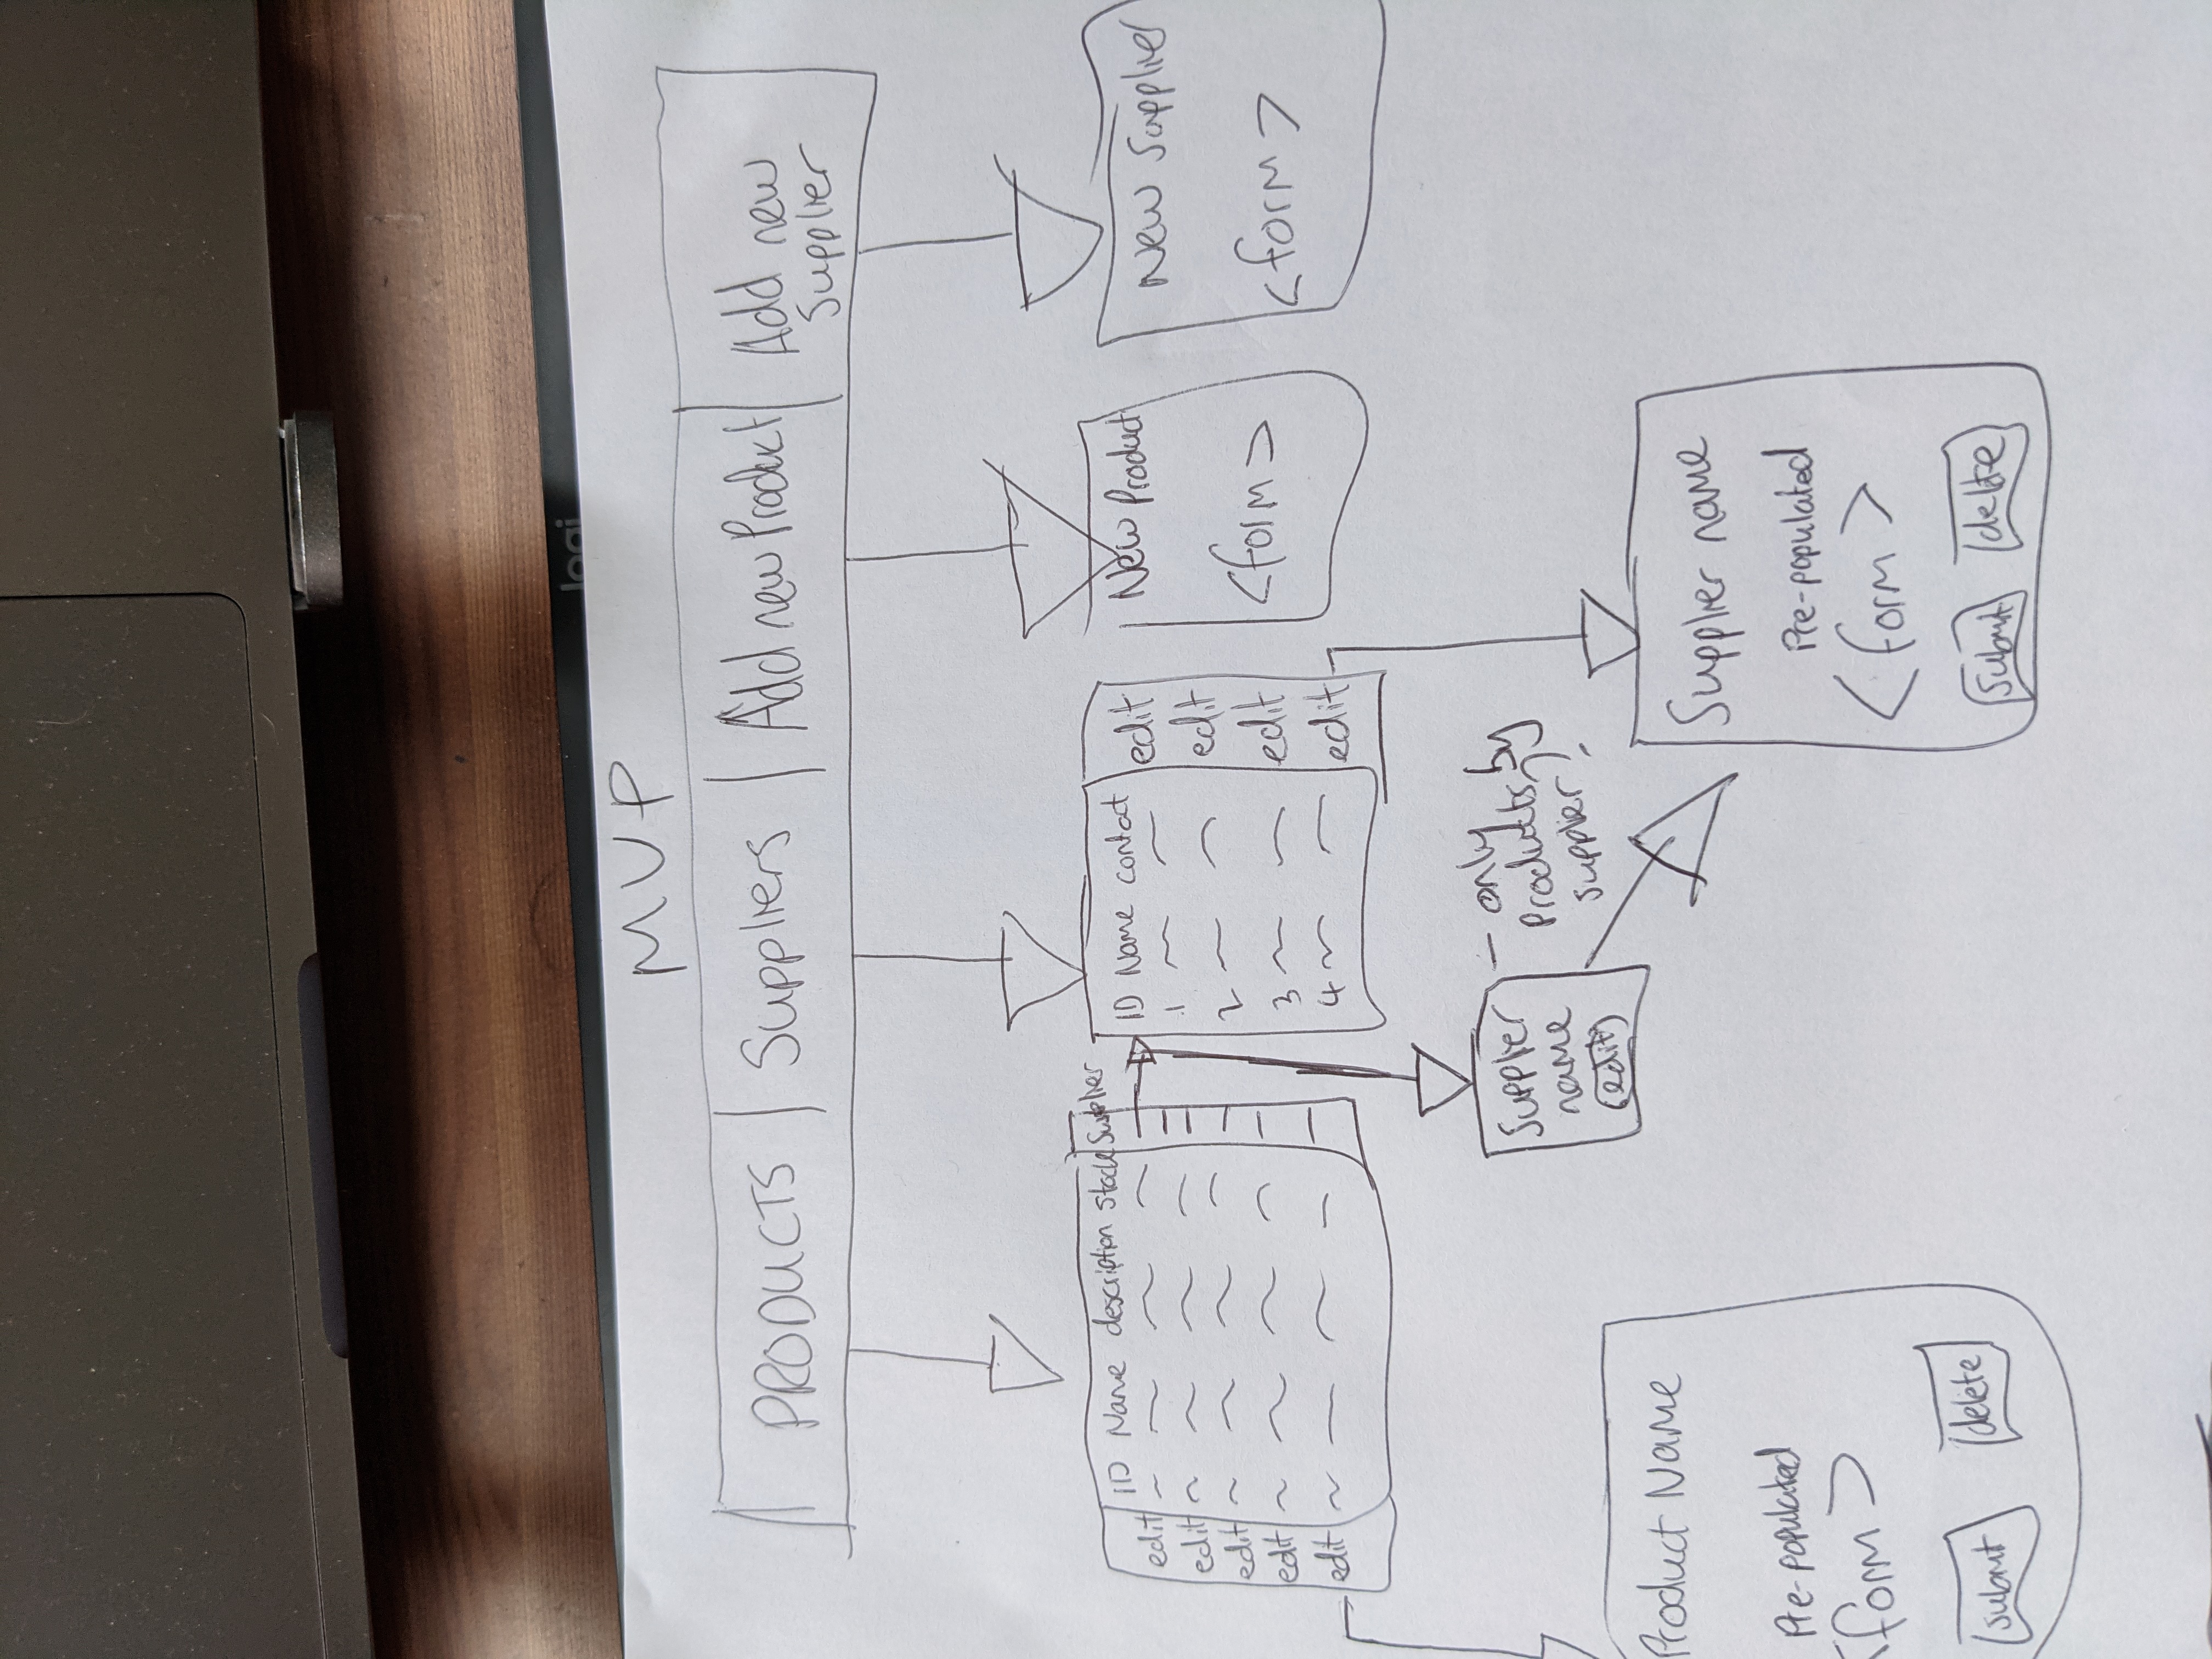 logi
MVP
PRODUCTS
Suppliers
Add new Product
Add new
Supplier
ID Name description stock Supplier
edit
edit
edit
edit
edit
ID Name contact
1
2
3
4
edit
edit
edit
edit
New Product
<form>
New Supplier
<form>
Supplier
name
(edit)
- only
Products by
supplier?
Product Name
Pre-populated
<form>
submit
delete
Supplier name
Pre-populated
<form>
Submit
delete